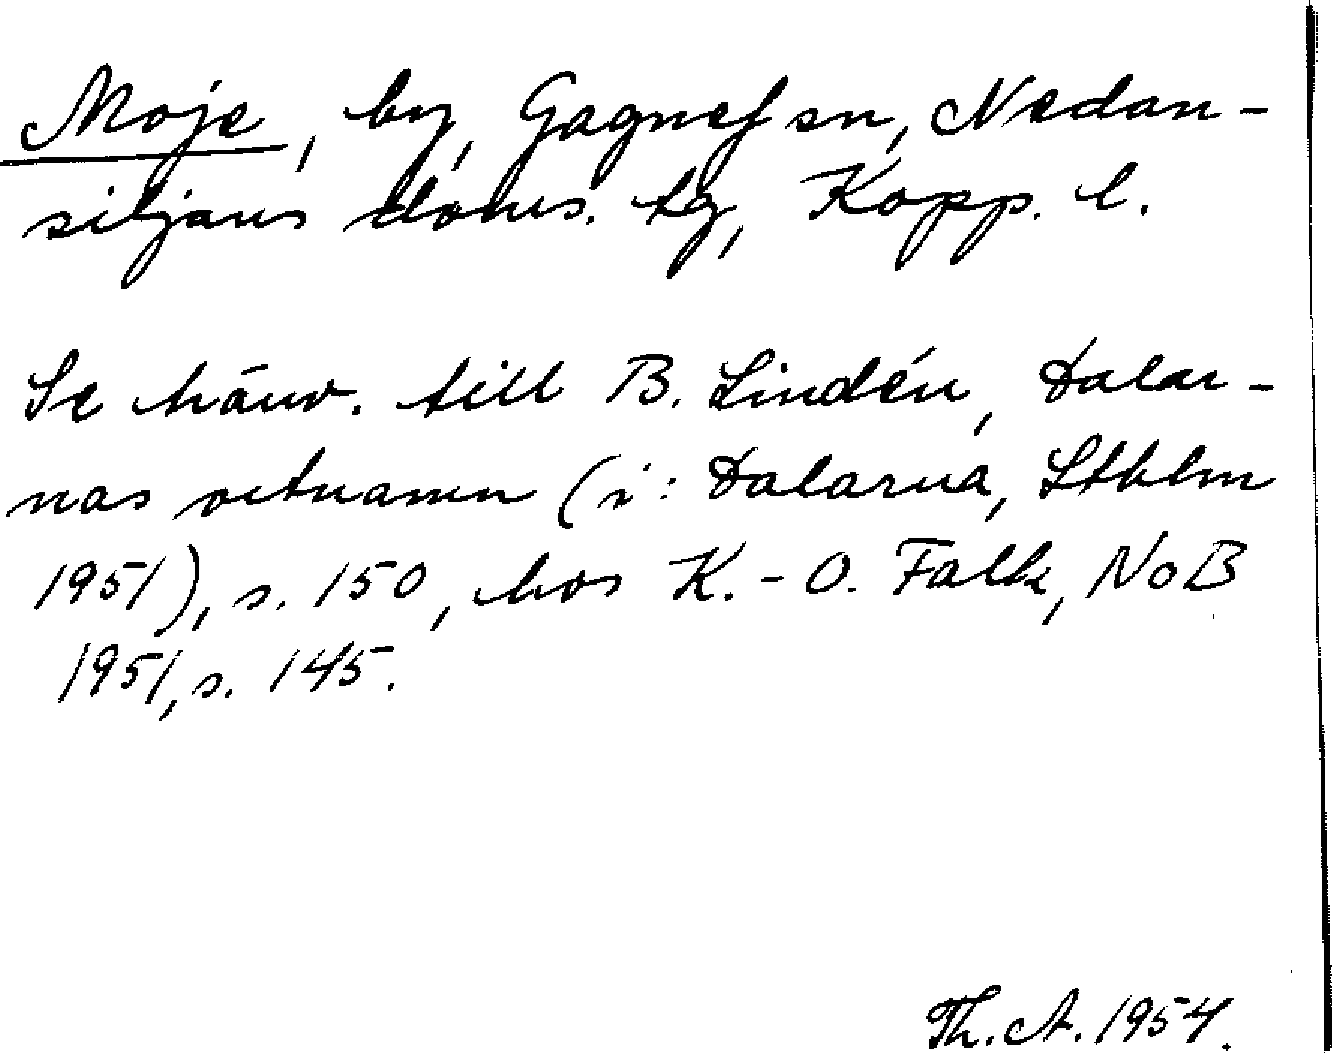 Moje, by, Gagnef sn, Nedan-
siljans doms. tg, Kopp. l.
Se hänv. till B. Lindén, Dalar-
nas ortnamn (i: Dalarna, Sthlm
1951), s. 150, hos K.-O. Falk, NoB
1951, s. 145.
Th. A. 1954.